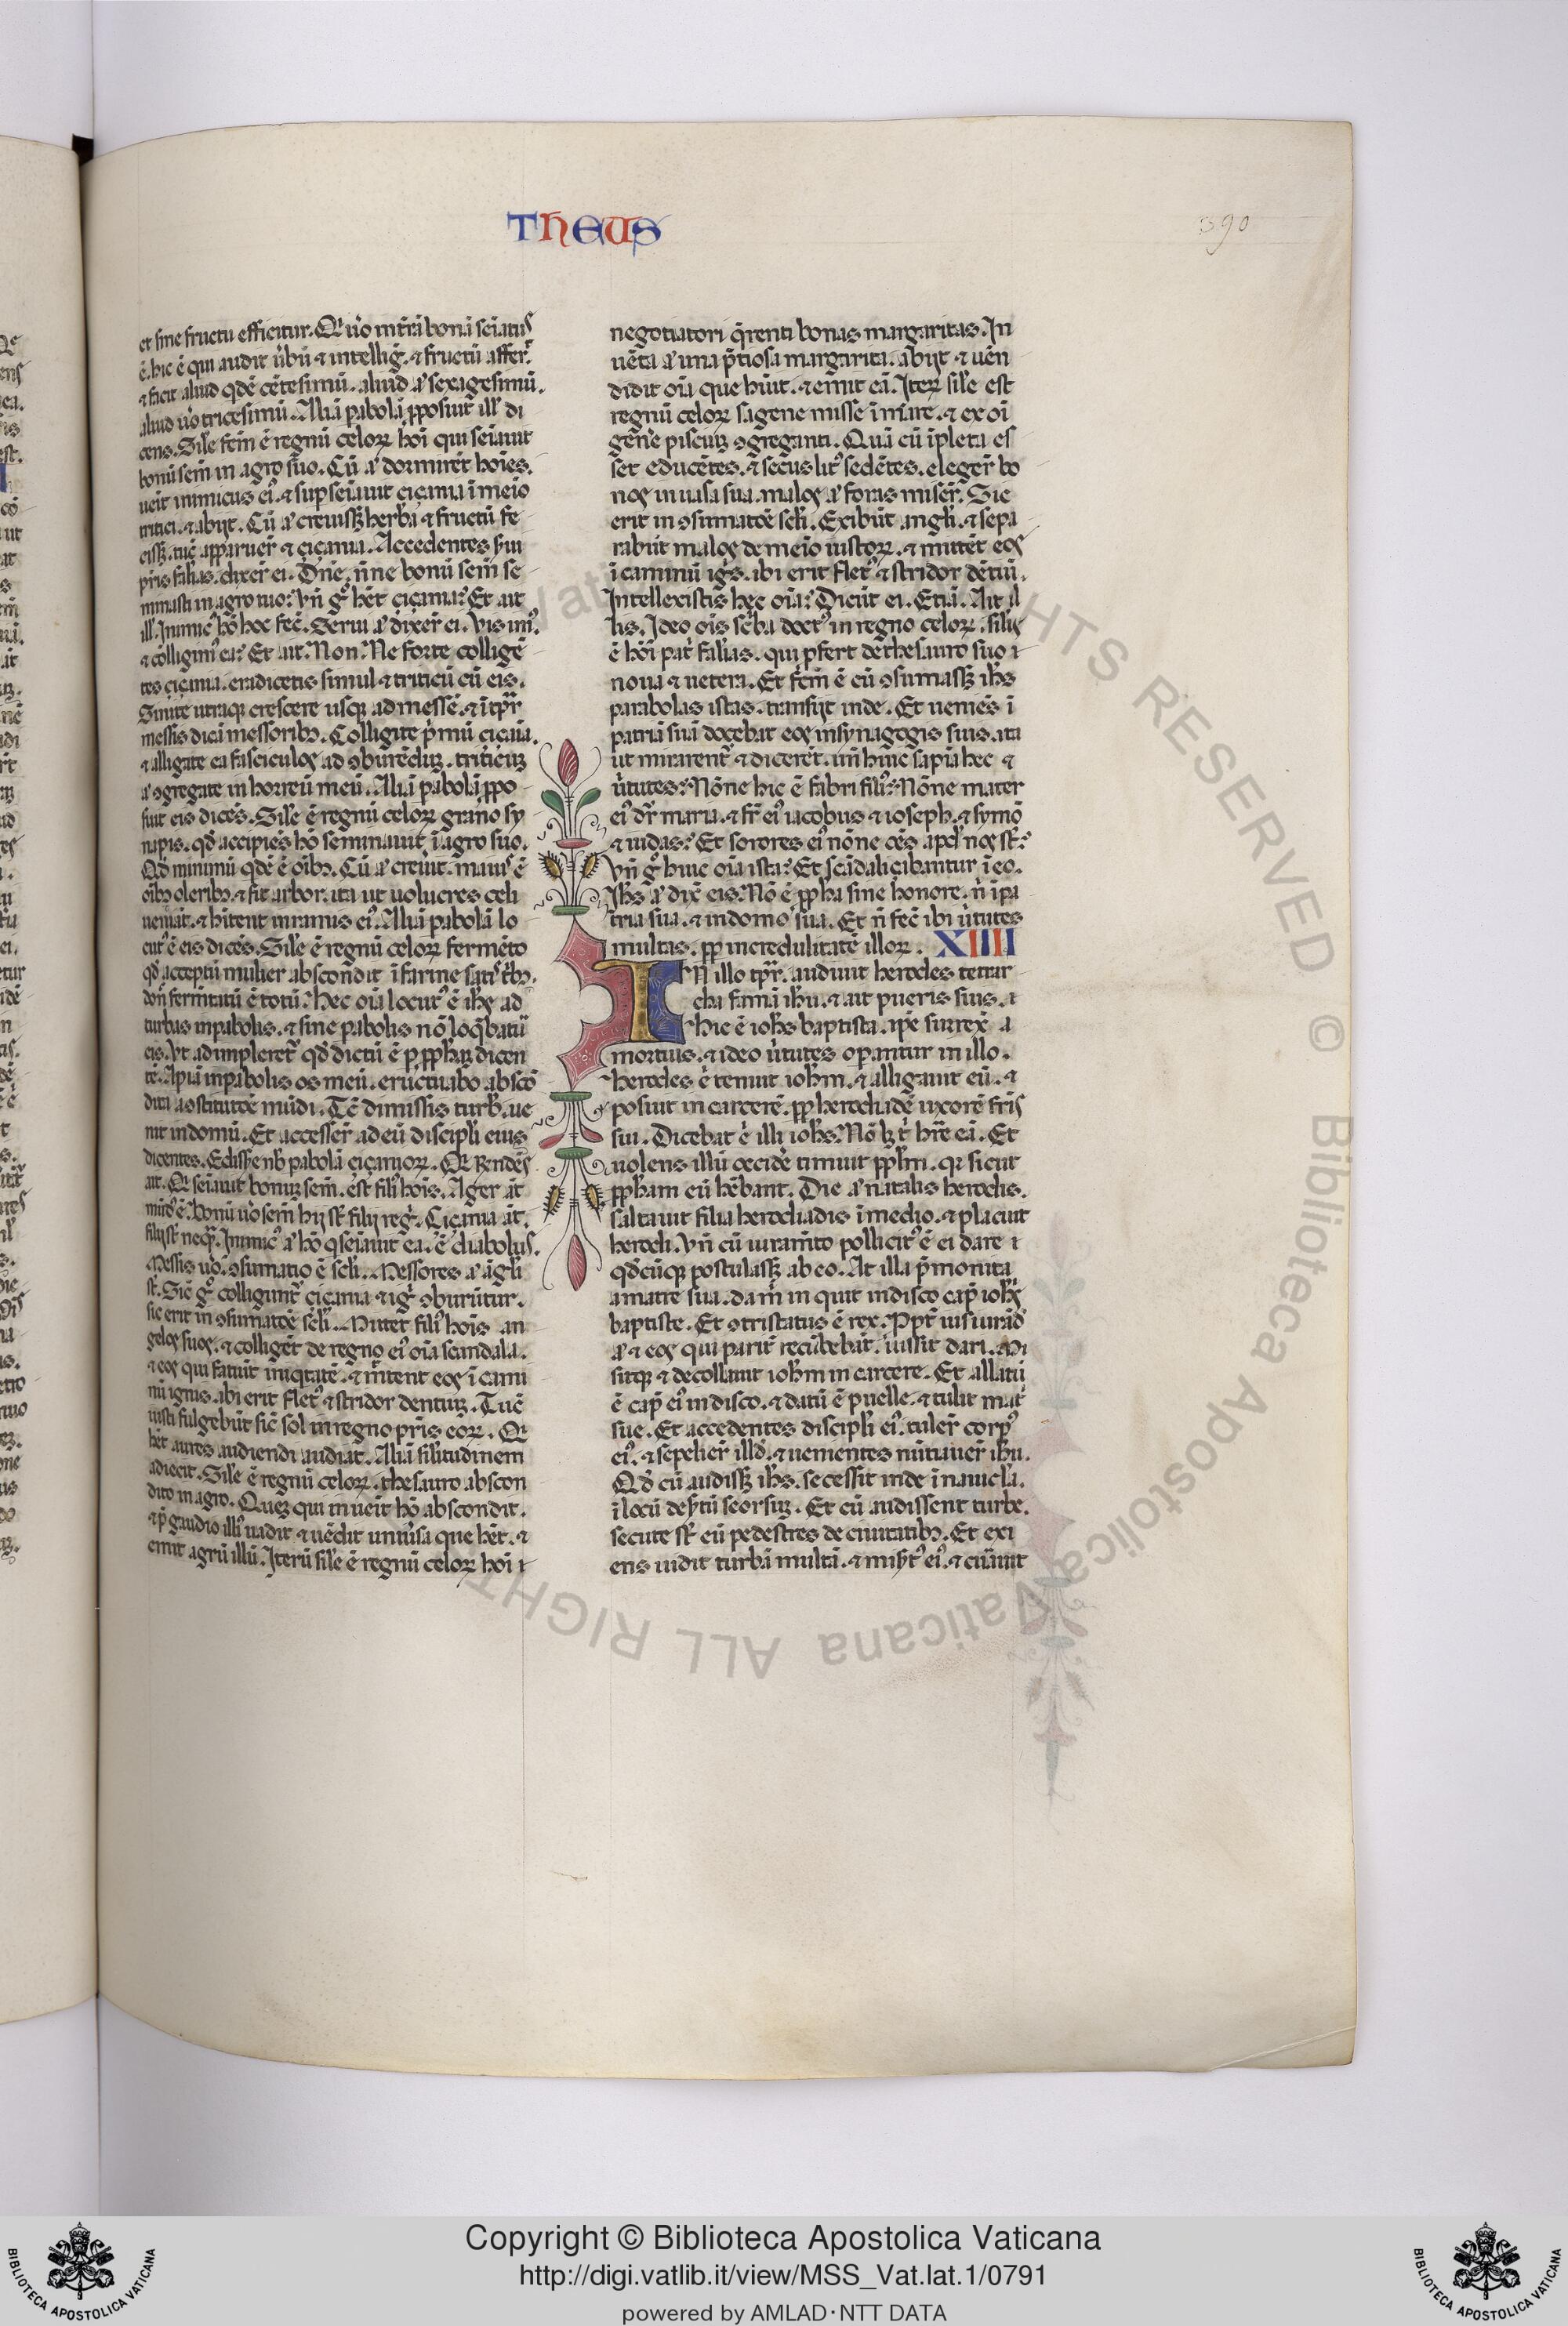 THEUS
390
et sine fructu efficitur. Q̄ ůo in t̄rā bonā seīatus
ē. hic ē qui audit ůbū ⁊ intelligit̄. ⁊ fructū affert̄.
⁊ facit aliud qdē cētesimū. aliud aͭ sexagesimū.
aliud ůo tricesimū. Aliā pabolā pposuit ill̓ di
cens. Sil̓e fc̄m ē regnū celoꝝ hoī qui seīauit
bonū sem̄ in agro suo. Cū aͭ dormirēt hoīes.
ueīt inimicus eiꝰ. ⁊ sup seīauit ciçania ī meīo
tritici. ⁊ abijt. Cū aͭ creuissꝫ herba ⁊ fructū fe
cissꝫ. tūc apparuer̄ ⁊ ciçania. Accedentes ẜui
pr̄is falias. dixer̄ ei. Dn̄e. n̄ne bonū sem̄ se
minasti in agro tuo? Vn̄ gͦ h̄et ciçania? Et ait
ill̓. Inimicꝰ hō hoc fec̄. Serui aͭ dixer̄ ei. Vis imꝰ.
⁊ colligimꝰ ea? Et ait. Non. Ne forte colligē
tes ciçania. eradicetis simul ⁊ triticū cū eis.
Sinite utraqꝫ crescere usqꝫ ad messē. ⁊ ī tp̄r
messis dicā messoribꝫ. Colligite pͥmū ciçaīa.
⁊ alligate ea fasciculos ad ꝯburēdū. triticuꝫ
aͭ ꝯgregate in horreū meū. Aliā pabolā ppo
suit eis dicēs. Sil̓e ē regnū celoꝝ grano sy
napis. qđ accipiēs hō seminauit ī agro suo.
Qđ minimū qdē ē oībꝫ. Cū aͭ creuit. maiꝰ ē
oībꝫ oleribꝫ. ⁊ fit arbor. ita ut uolucres celi
ueniāt. ⁊ h̄itent in ramis eiꝰ. Aliā pabolā lo
cutꝰ ē eis dicēs. Sil̓e ē regnū celoꝝ fermēto
qđ acceptū mulier abscondit ī farine satis t̓bꝫ.
don̄ ferm̄tatū ē totū. Hec oīa locutꝰ ē ih̄s ad
turbas in pabolis. ⁊ sine pabolis nō loq̄batur
eis. Vt adimpleret̄ qđ dictū ē p pph̄aꝫ dicen
tē. Apiā in pabolis os meū. eructuabo abscō
dita a ꝯstitutōe mūdi. Tc̄ dimissis turb̓. ue
nit in domū. Et accesser̄ ad eū discipli eius
dicentes. Edissere nob̓ pabolā ciçanioꝝ. Q̄ r̄ndēs
ait. Q̄ seīauit bonuꝫ sem̄. est filiꝰ hoīs. Ager aͭ
mūdꝰ ē. Bonū ůo sem̄ hij st̄ filij reg̓. Ciçania aͭ.
filij st̄ neq̄ꝫ. Inimicꝰ aͭ hō q seīauit ea. ē diabolus.
Messis ůo. ꝯsumatio ē sc̄li. Messores aͭ āgli
st̄. Sic̄ gͦ colligunt̄ ciçania ⁊ ig̓ ꝯburūtur.
sic erit in ꝯsumatōe sc̄li. Mittet filiꝰ hoīs an
gelos suos. ⁊ colligēt de regno eiꝰ oīa scandala.
⁊ eos qui faciūt iniqtatē. ⁊ mittent eos ī cami
nū ignis. ibi erit fletꝰ ⁊ stridor dentiuꝫ. Tūc
iusti fulgebūt sic̄ sol in regno pr̄is eoꝝ. Q̄
h̄et aures audiendi audiat. Aliā sil̓itudinem
adiecit. Sil̓e ē regnū celoꝝ. thesauro abscon
dito in agro. Queꝫ qui inueīt hō abscondit.
⁊ p̄ gaudio illiꝰ uadit ⁊ uēdit uniůsa que h̄et. ⁊
emit agrū illū. Iterū sil̓e ē regnū celoꝝ hoī ⁊
negotiatori q̄renti bonas margaritas. In
uēta aͭ una p̄tiosa margarita. abijt ⁊ uēn
didit oīa que h̄uit. ⁊ emit eā. Iteꝝ sil̓e est
regnū celoꝝ sagene misse ī mare. ⁊ ex oī
gēn̄e pisciuꝫ ꝯgreganti. Quā cū īpleta es
set educētes. ⁊ secus litꝰ sedētes. eleger̄ bo
nos in uasa sua. malos aͭ foras miser̄. Sic
erit in ꝯsumatōe sc̄li. Exibūt angl̓i. ⁊ sepa
rabūt malos de meīo iustoꝝ. ⁊ mittēt eos
ī caminū ig̓s. ibi erit fletꝰ ⁊ stridor dētiū.
Intellexistis hec oīa? Dicūt ei. Etiā. Ait il
lis. Ideo oīs sc̄ba doctꝰ in regno celoꝝ. sil̓is
ē hōi patͥ falias. qui pfert de thesauro suo ⁊
noua ⁊ uetera. Et fc̄m ē cū ꝯsumassꝫ ih̄s
parabolas istas. transijt inde. Et ueniēs ī
patriā suā docebat eos in synagogis suis. ita
ut mirarent̄ ⁊ dicerēt. un̄ huic sapīa hec ⁊
ůtutes? Nōne hic ē fabri filiꝰ? Nōne mater
eiꝰ dr̄ maria. ⁊ fr̄ eiꝰ iacobus ⁊ ioseph. ⁊ symō
⁊ iudas? Et sorores eiꝰ nōne oēs apd̓ nos st̄?
Vn̄ gͦ huic oīa ista? Et scādaliçabantur ī eo.
Ih̄s aͭ dix̄ eis. Nō ē pph̄a sine honore. n̄ ī pa
tria sua. ⁊ in domo sua. Et n̄ fec̄ ibi ůtutes
multas. pp incredulitatē illoꝝ. XIIII
IN illo tp̄r. audiuit herodes tetrar
cha famā ih̄u. ⁊ ait pueris suis. ⁊
Hic ē ioh̄s baptista. ip̄e surrex̄ a
mortuis. ⁊ ideo ůtutes opantur in illo.
Herodes .n. tenuit ioh̄m. ⁊ alligauit eū. ⁊
posuit in carcerē. pp herodiadē uxorē fr̄is
sui. Dicebat .n. illi ioh̄s. Nō lꝫ tͥ h̄re eā. Et
uolens illū occidē timuit pp̄lm. qꝛ sicut
pph̄am eū h̄ebant. Die aͭ natalis herodis.
saltauit filia herodiadis ī medio. ⁊ placuit
herodi. Vn̄ cū iuram̄to pollicitꝰ ē ei dare ⁊
qđcūqꝫ postulassꝫ ab eo. At illa p̄monita
a matre sua. da m̓ in quit in disco cap̄ ioh̄s
baptiste. Et ꝯtristatus ē rex. Ppt̄ iusiurād̓
aͭ ⁊ eos qui parit̄ recūbebāt. iussit dari. Mi
sitqꝫ ⁊ decollauit ioh̄m in carcere. Et allatū
ē cap̄ eiꝰ in disco. ⁊ datū ē puelle. ⁊ tulit matͥ
sue. Et accedentes discipl̓i eiꝰ. tuler̄ corpꝰ
eiꝰ. ⁊ sepelier̄ illđ. ⁊ uenientes nūtiauer̄ ih̄u.
Qđ cū audissꝫ ih̄s. secessit inde ī naucl̓a.
ī locū deẜtū seorsuꝫ. Et cū audissent turbe.
secute st̄ eū pedestres de ciuitatibꝫ. Et exi
ens uidit turbā multā. ⁊ miẜtꝰ eiꝰ. ⁊ curauit
Biblioteca Apostolica Vaticana ALL RIGHTS RESERVED ©
Copyright © Biblioteca Apostolica Vaticana
http://digi.vatlib.it/view/MSS_Vat.lat.1/0791
powered by AMLAD·NTT DATA
BIBLIOTECA APOSTOLICA VATICANA
BIBLIOTECA APOSTOLICA VATICANA